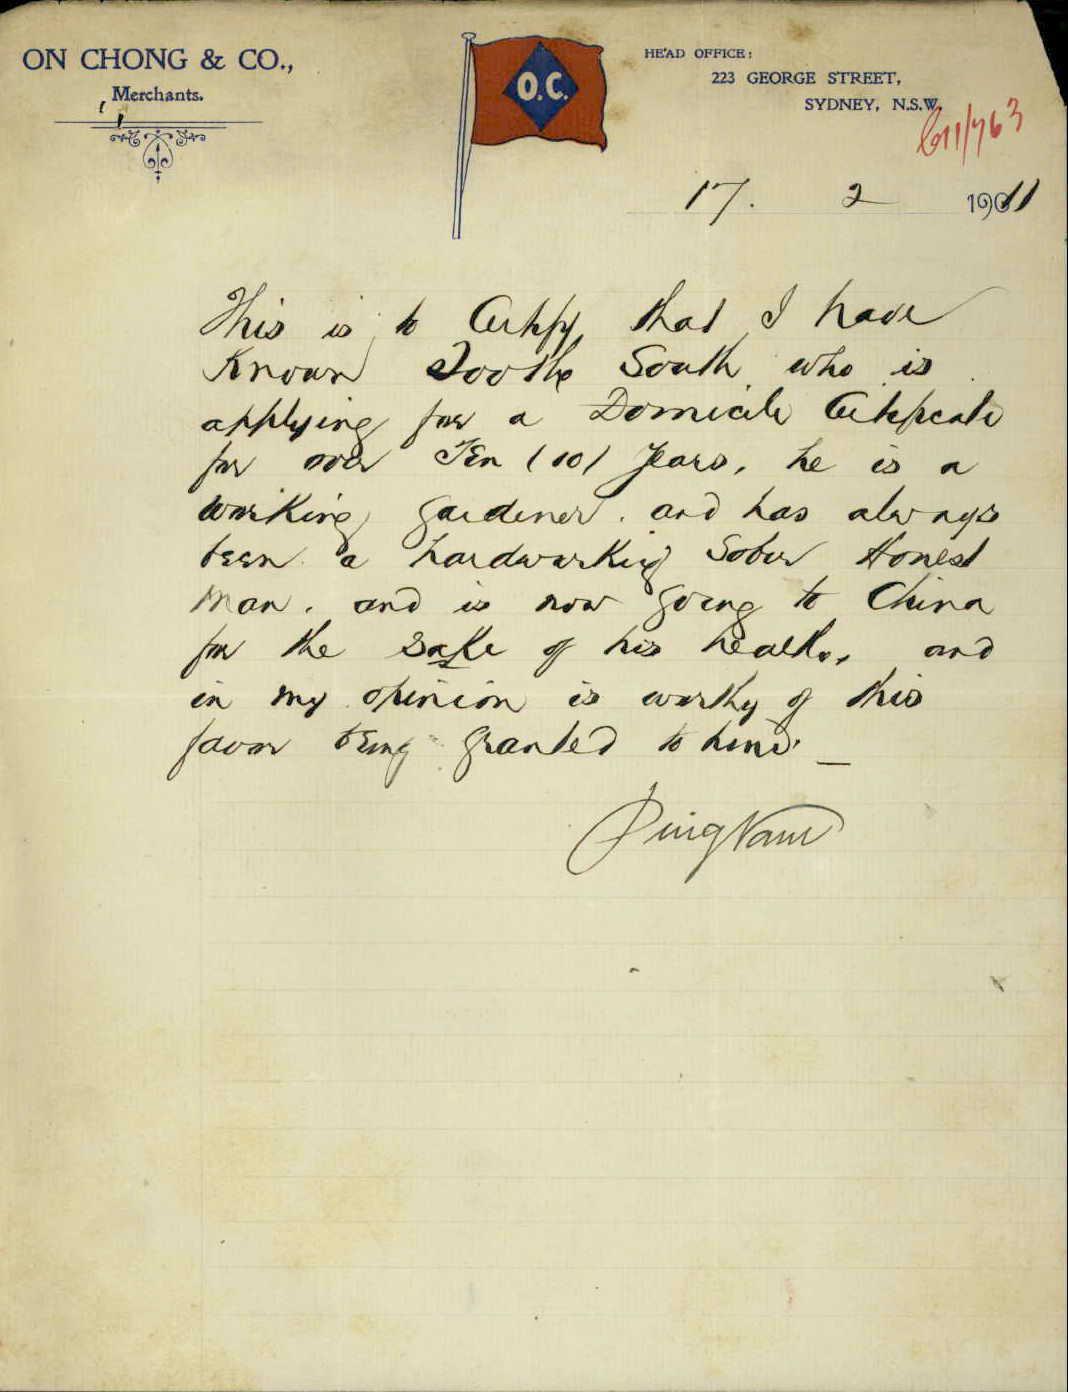 ON CHONG & CO.,
Merchants.
O.C.
HEAD OFFICE:
223 GEORGE STREET,
SYDNEY, N.S.W.
C11/763
17. 2 1911
This is to Certify that I have
Known South who is
applying for a Domicile Certificate
for over Ten (10) Years, he is a
working gardener. and has always
been a hardworking Sober Honest
Man. and is now going to China
for the sake of his health, and
in my opinion is worthy of this
favor being granted to him. _
Ping Nam